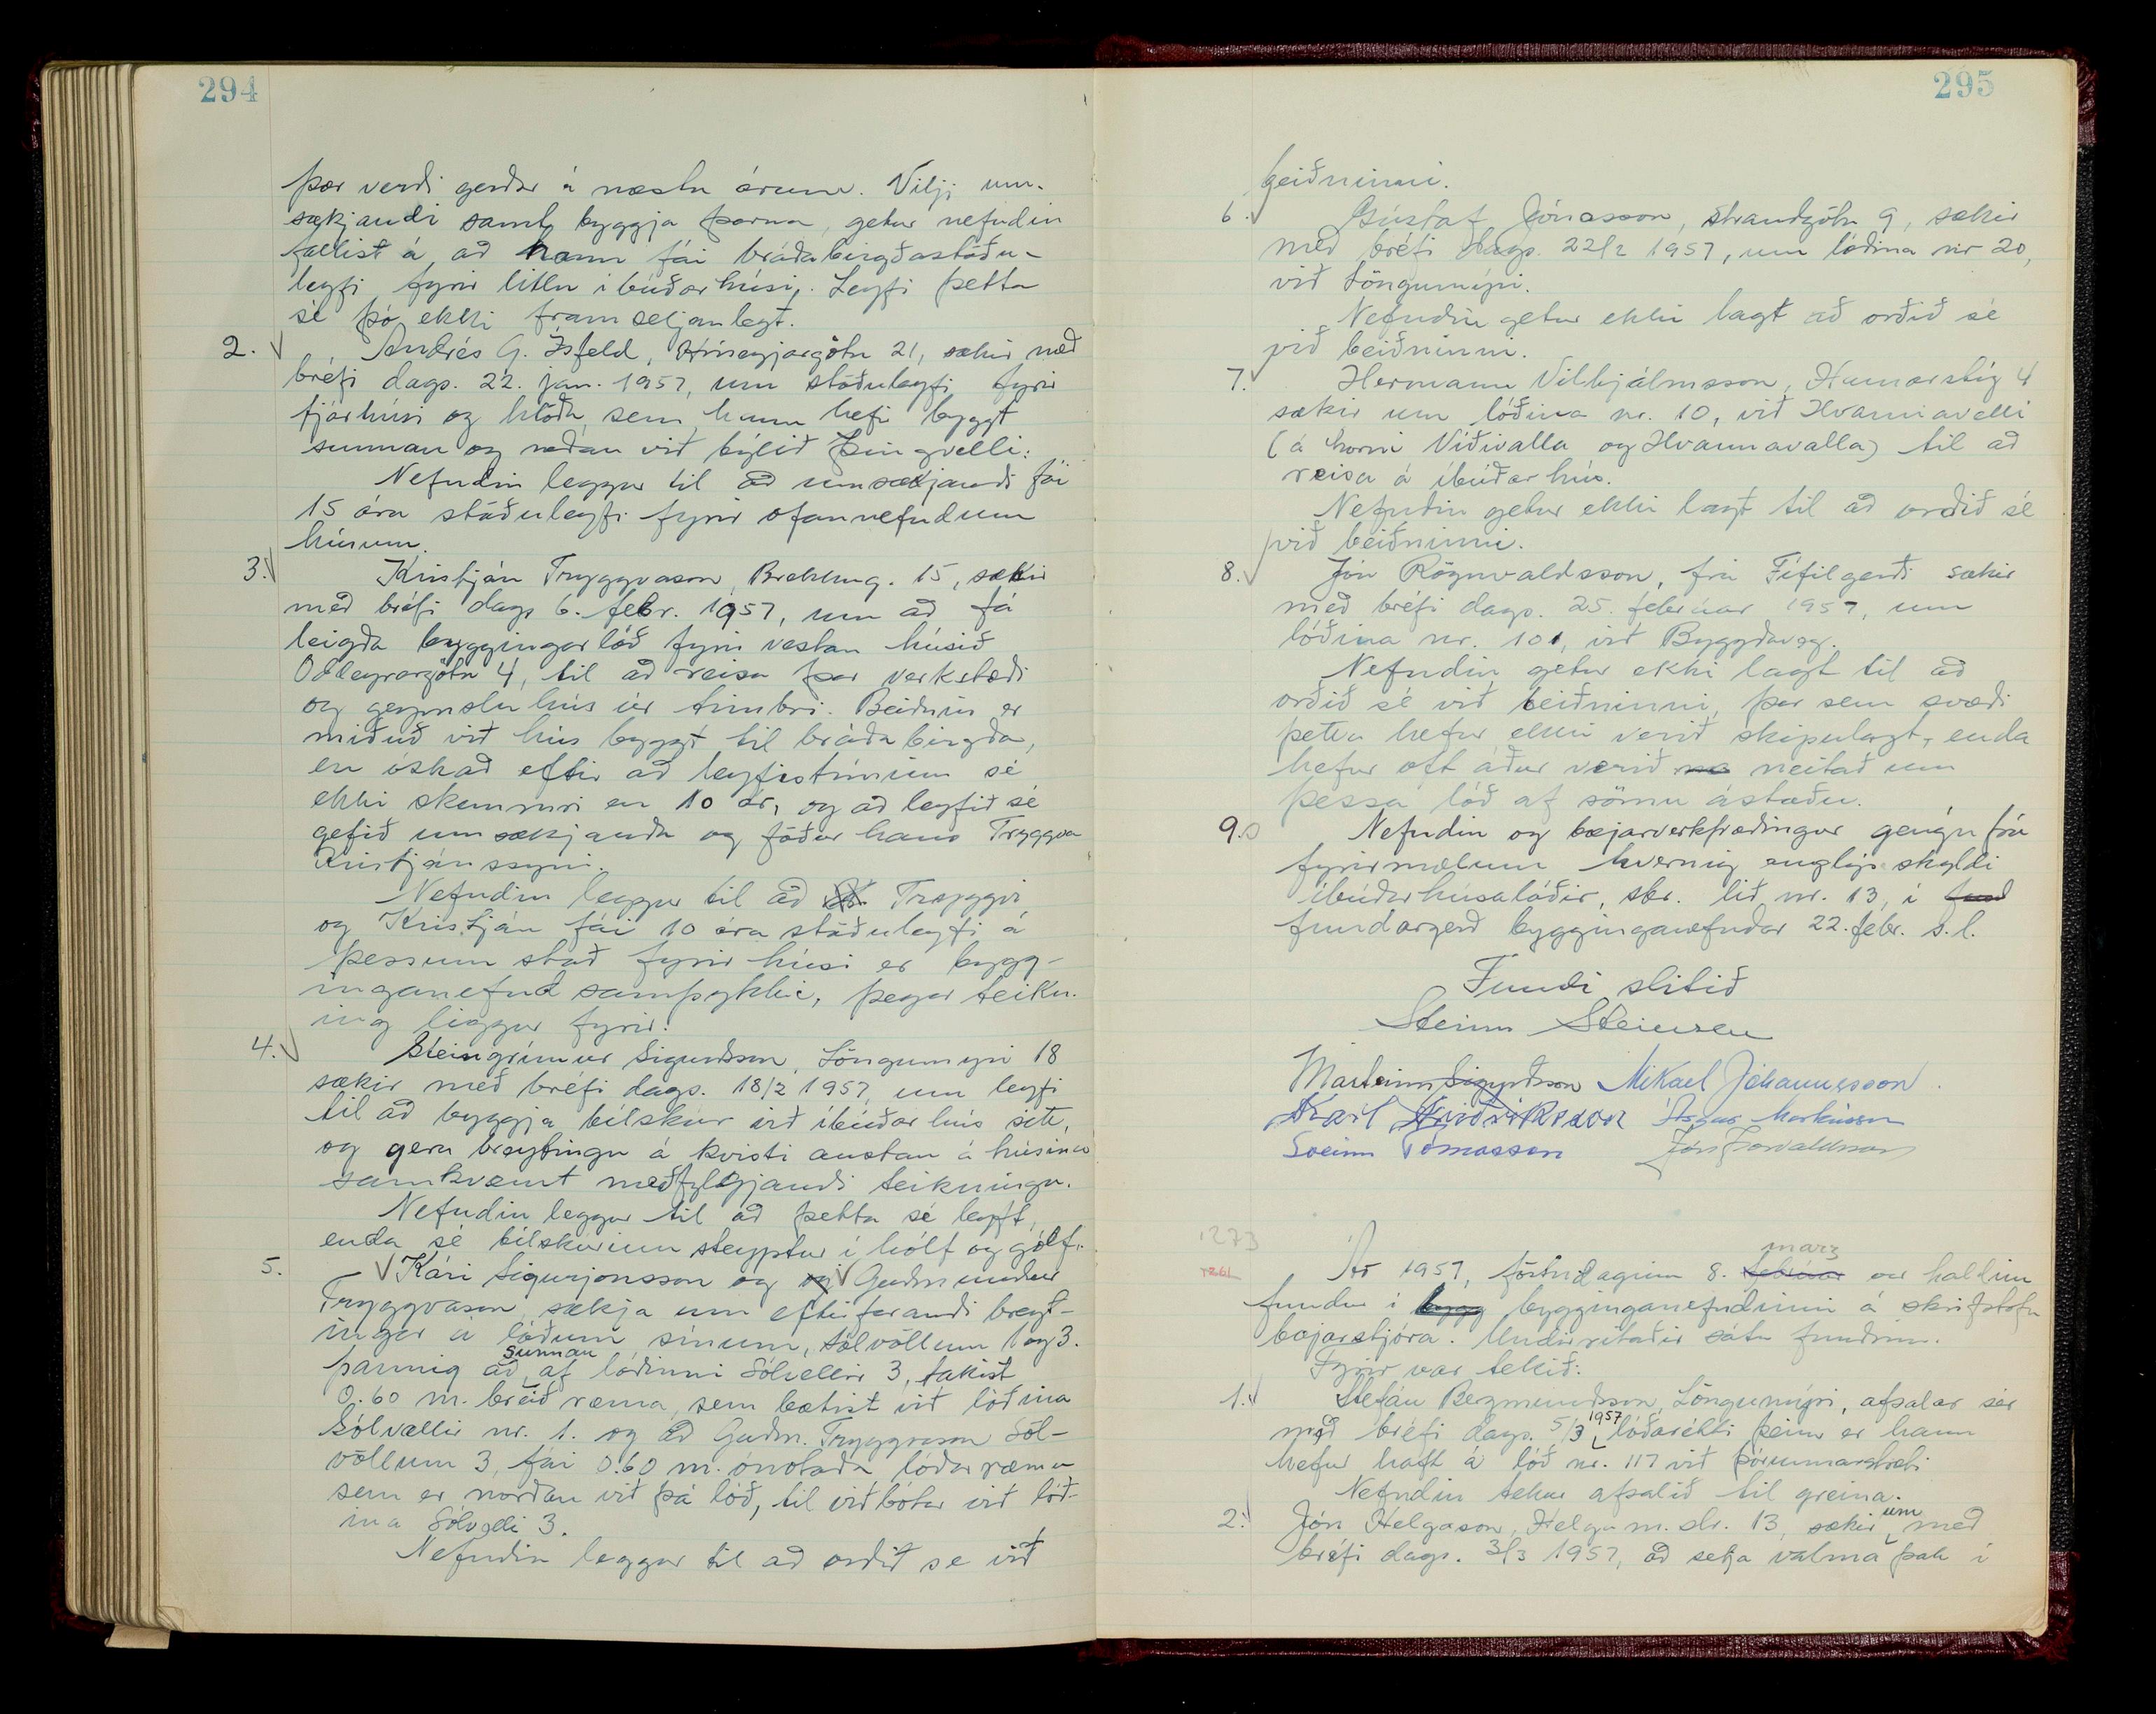 294
þar verði gerðar á næstu árum. Vilji um-
sækjandi samt byggja þarna, getur nefndin
fallist á að hann fái bráðabirgðastöðu-
leyfi fyrir litlu íbúðarhúsi. Leyfi þetta
sé þó ekki framseljanlegt.
2. Andrés G. Ísfeld, Húseyjargötu 21, sækir með
bréfi dags. 22. jan. 1957, um stöðuleyfi fyrir
fjárhúsi og hlöðu, sem hann hefi byggt
sunnan og neðan við býlið Þingvelli.
Nefndin leggur til að umsækjandi fái
15 ára stöðuleyfi fyrir ofannefndum
húsum.
3. Kristján Tryggvason, Brekkug. 15, sækir
með bréfi dags 6. febr. 1957, um að fá
leigða byggingarlóð fyrir vestan húsið
Oddeyrargötu 4, til að reisa þar verkstæði
og geymsluhús úr timbri. Beiðnin er
miðuð við hús byggt til bráðabirgða,
en óskað eftir að leyfistíminn sé
ekki skemmri en 10 ár, og að leyfið sé
gefið umsækjanda og föður hans Tryggva
Kristjánssyni.
Nefndin leggur til að Tryggvi
og Kristján fái 10 ára stöðuleyfi á
þessum stað fyrir húsi er bygg-
inganefnd samþykkir, þegar teikn-
ing liggur fyrir.
4. Steingrímur Sigurðsson, Löngumýri 18
sækir með bréfi dags. 18/2 1957, um leyfi
til að byggja bílskúr við íbúðarhús sitt,
og gera breytingu á kvisti austan á húsinu
samkvæmt meðfylgjandi teikningu.
Nefndin leggur til að þetta sé leyft,
enda sé bílskúrinn steyptur í hólf og gólf.
5. Kári Sigurjónsson og og Guðmundur
Tryggvason, sækja um eftirfarandi breyt-
ingar á lóðum sínum, Sólvöllum 1 og 3.
þannig að sunnan af lóðinni Sólvellir 3, takist
0.60 m. breið ræma, sem bætist við lóðina
Sólvellir nr. 1. og að Guðm. Tryggvason Sól-
völlum 3, fái 0.60 m. ónotaða lóðarræmu
sem er norðan við þá lóð, til viðbótar við lóð-
ina Sólvelli 3.
Nefndin leggur til að orðið se við
295
beiðninni.
6. Gústaf Jónasson, Strandgötu 9, sækir
með bréfi dags. 22/2 1957, um lóðina nr 20,
við Löngumýri.
Nefndin getur ekki lagt að orðið sé
við beiðninni.
7. Hermann Vilhjálmsson, Hamarstíg 4
sækir um lóðina nr. 10, við Hvannavelli
(á horni Víðivalla og Hvannavalla) til að
reisa á íbúðarhús.
Nefndin getur ekki lagt til að orðið sé
við beiðninni.
8. Jón Rögnvaldsson, frá Fífilgerði sækir
með bréfi dags. 25. febrúar 1957, um
lóðina nr. 101, við Byggðaveg.
Nefndin getur ekki lagt til að
orðið sé við beiðninni, þar sem svæði
þetta hefur ekki verið skipulagt, enda
hefur oft áður verið na neitað um
þessa lóð af sömu ástæðu.
9. Nefndin og bæjarverkfræðingur gengu frá
fyrirmælum hvernig auglýsa skyldi
íbúðarhúsalóðir, sbr. lið nr. 13, í fund
fundargerð bygginganefndar 22. febr. s.l.
Fundi slitið
Steinn Steinsen
Marteinn Sigurðsson Mikael Jóhannesson.
Karl Friðriksson Ásgeir Markússon
Sveinn Tómasson Jón Þorvaldsson
1273
1261
Ár 1957, föstudaginn 8. febrúar marz var haldinn
fundur í bygg bygginganefndinni á skrifstofu
bæjarstjóra. Undirritaðir sátu fundinn.
Fyrir var tekið:
1. Stefán Bergmundsson, Löngumýri, afsalar sér
með bréfi dags. 5/3 1957 lóðarétti þeim er hann
hefur haft á lóð nr. 117 við Þórunnarstræti
Nefndin tekur afsalið til greina.
2. Jón Helgason, Helga m. str. 13, sækir um með
bréfi dags. 3/3 1957, að setja valma þak í